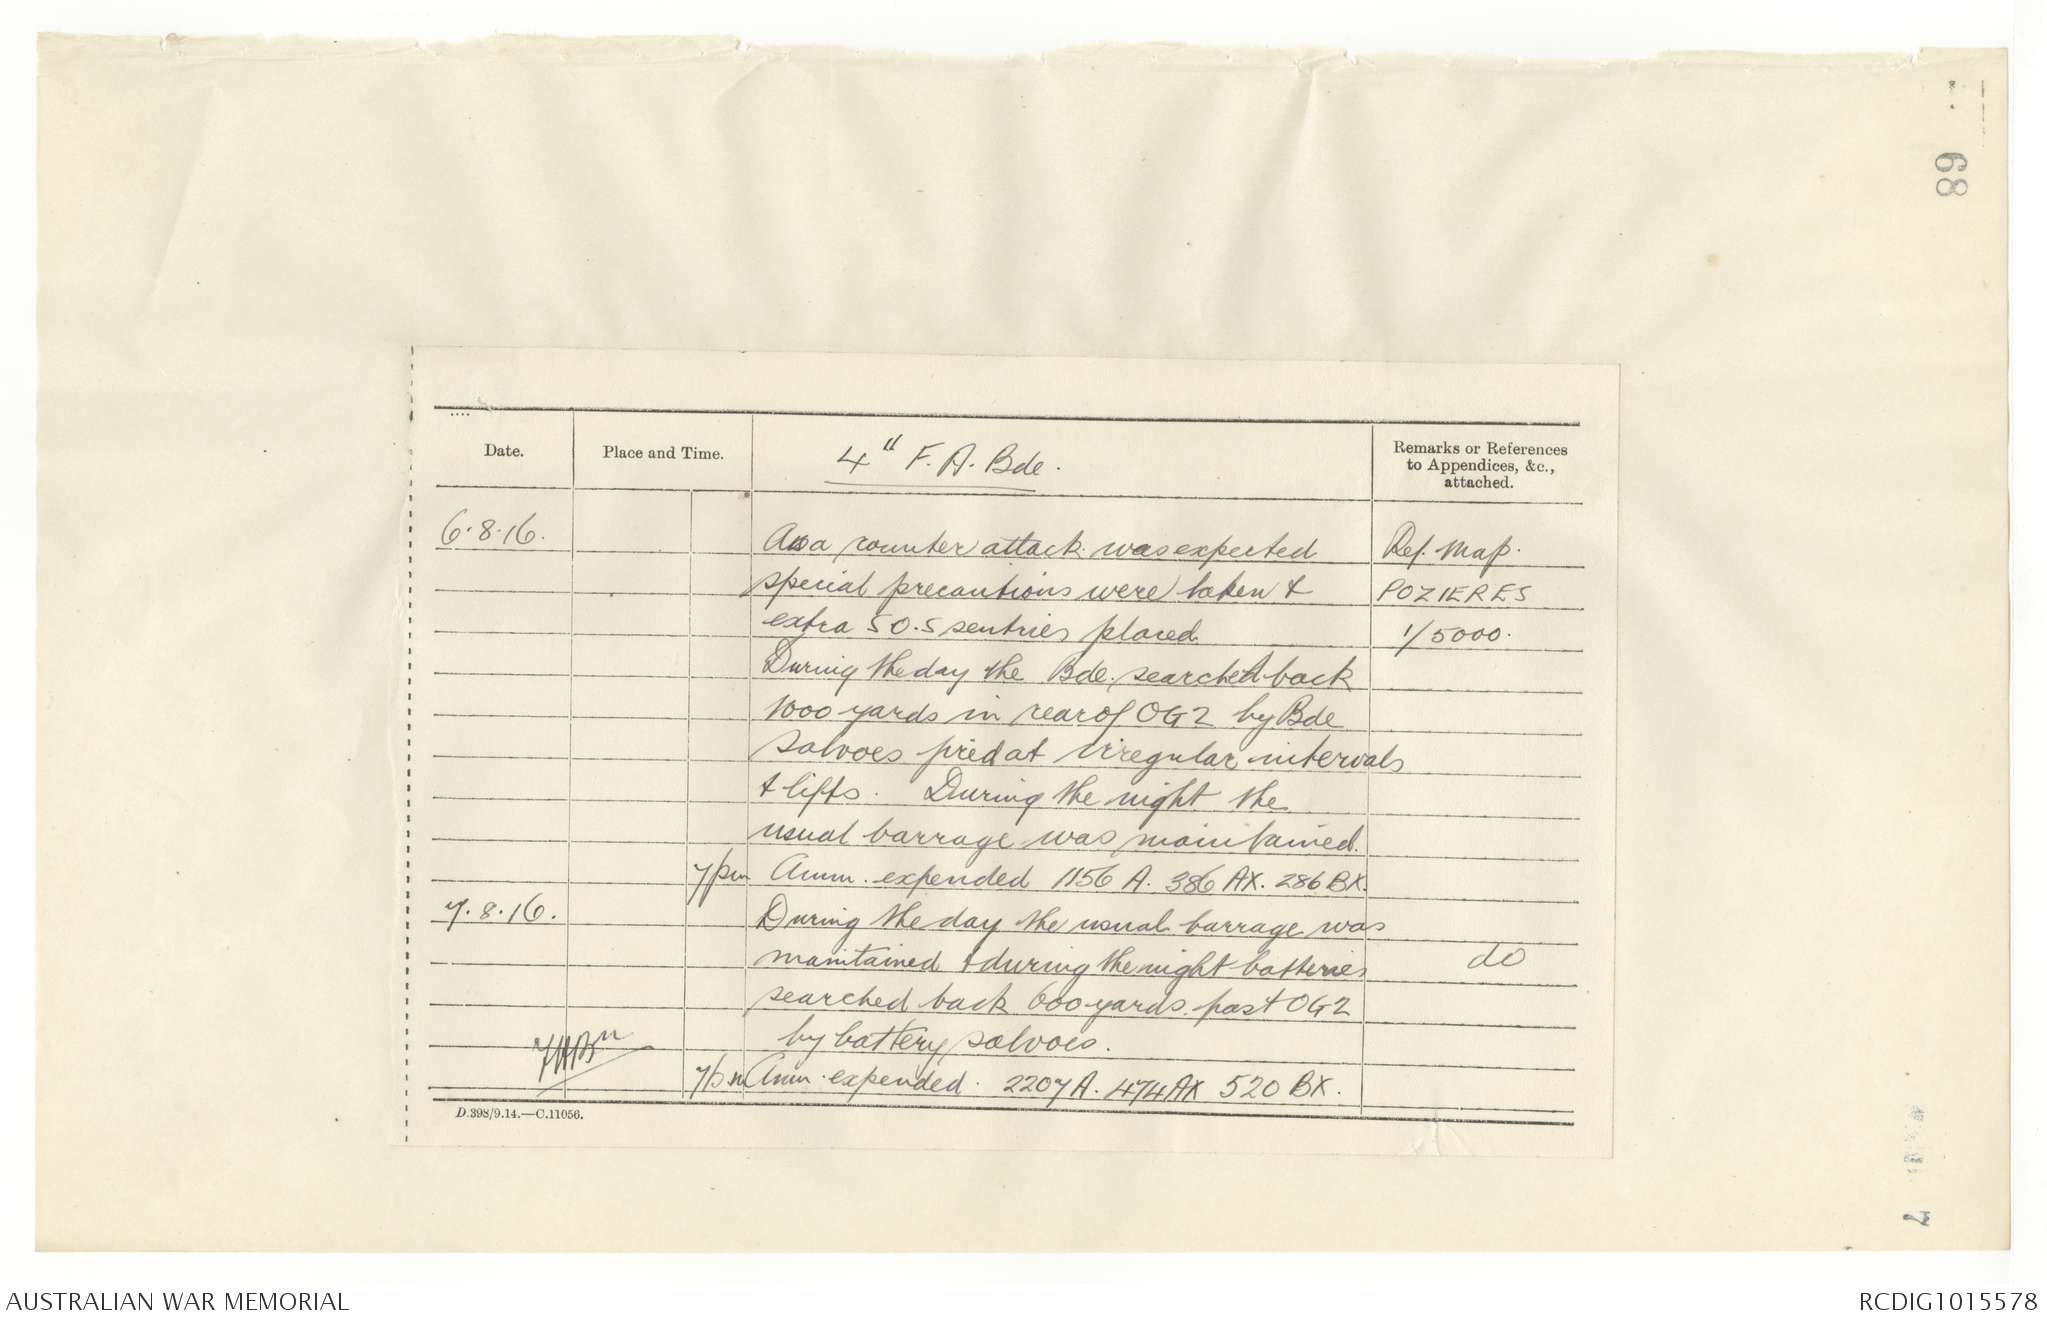 89
Date.
Place and Time.
4th F. A. Bde.
Remarks or References
to Appendices, &c.,
attached.
6.8.16.
As a counter attack was expected
Ref. Map.
special precautions were taken &
POZIERES
extra S O.S sentries placed.
1/5000.
During the day the Bde. searched back
1000 yards in rear of OG2 by Bde
salvoes fired at irregular intervals
& lifts. During the night the
usual barrage was maintained.
7pm Amm. expended 1156 A. 386 AX. 286 BX.
7.8.16.
During the day the usual barrage was
maintained & during the night batteries
do
searched back 600 yards past OG2
by battery salvoes.
7pm Amm. expended. 2207 A. 474 AX 520 BX.
D.398/9.14.—C.11056.
7
AUSTRALIAN WAR MEMORIAL
RCDIG1015578